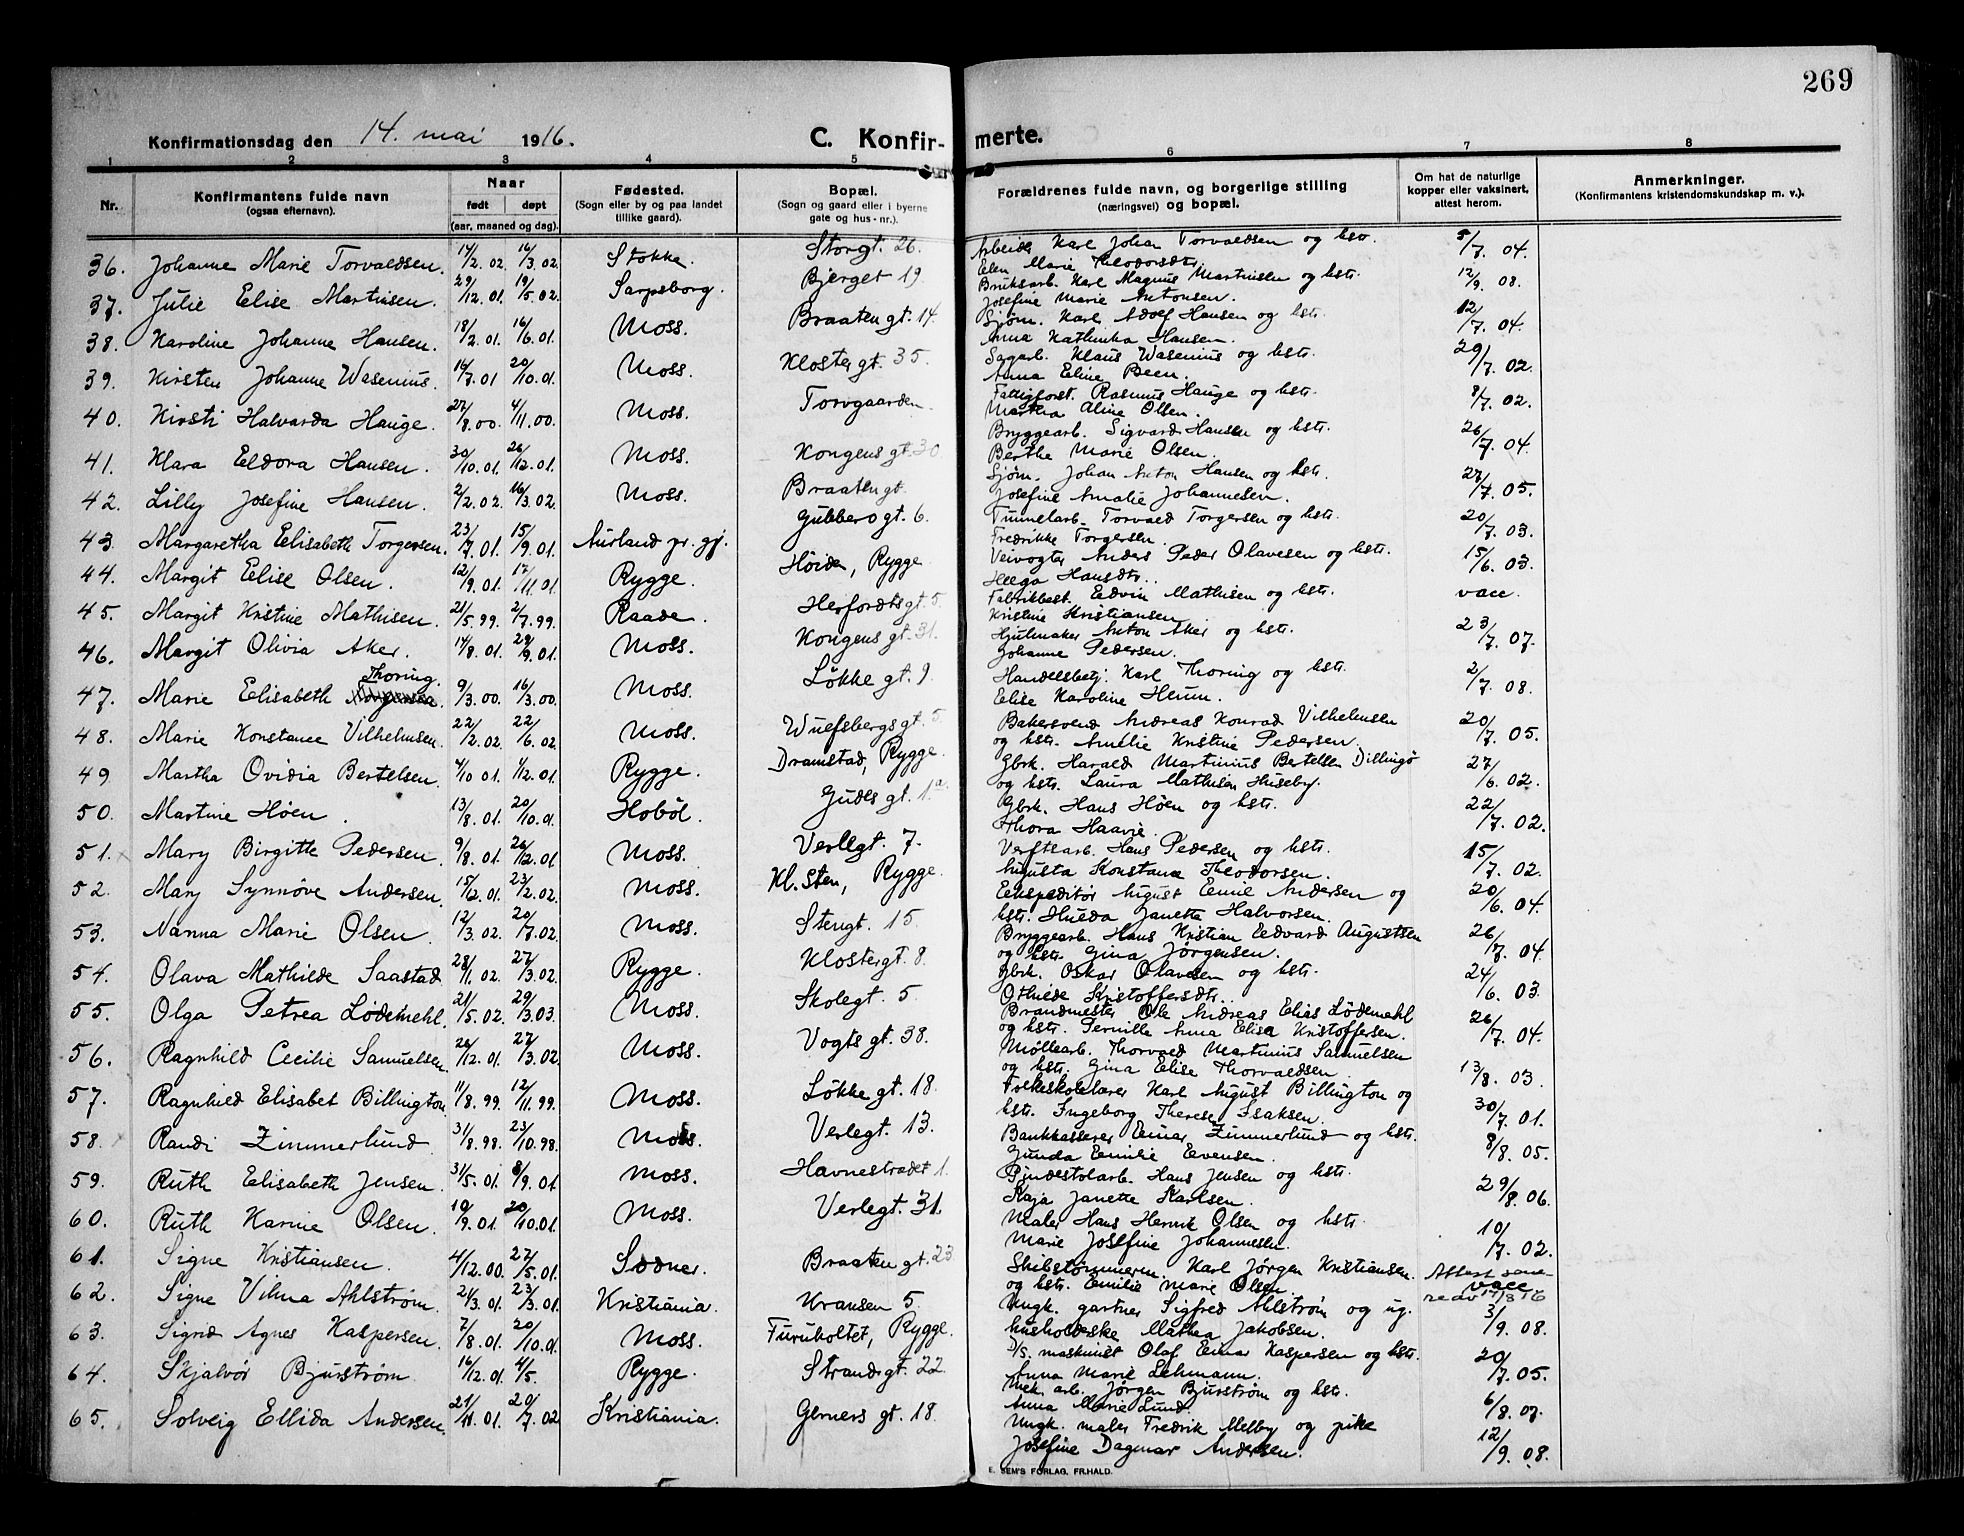 269
Konfirmationsdag den 14. mai 1916. C. Konfirmerte.
1 2 3 4 5 6 7 8
Nr. Konfirmantens fulde navn (ogsaa efternavn). Naar født døpt (aar, maaned og dag). Fødested. (Sogn eller by og paa landet tillike gaard). Bopæl. (Sogn og gaard eller i byerne gate og hus-nr.). Forældrenes fulde navn, og borgerlige stilling (næringsvei) og bopæl. Om hat de naturlige kopper eller vaksinert, attest herom. Anmerkninger. (Konfirmantens kristendomskundskap m. v.).
36. Johanne Marie Torvaldsen. 14/2.02. 16/3.02. Stokke. Storgt. 26. Arbeider Karl Johan Torvaldsen og hstr. 5/7. 04.
Elen Marie Theodorsdtr.
37. Julie Elise Martinsen. 29/12.01. 19/5.02. Sarpsborg. Bjerget 19. Bruksarb. Karl Magnus Martinsen og hstr. 12/9. 08.
Josefine Marie Antonsen.
38. Karoline Johanne Hansen. 18/2.01. 16/6.01. Moss. Braaten gt. 14. Sjøm. Karl Adolf Hansen og hstr. 12/7. 04.
Anna Kathinka Hansen.
39. Kirsten Johanne Wasenius. 14/7.01 20/10.01. Moss. Kloster gt. 35. Sagarb. Klaus Wasenius og hstr. 29/7. 02.
Anna Eline Been.
40. Kirsti Halvarda Hauge. 27/8.00. 4/11.00. Moss. Torvgaarden. Fattigforst. Rasmus Hauge og hstr. 8/7. 02.
Martha Aline Olsen.
41. Klara Eldora Hansen. 30/10.01. 26/12.01. Moss. Kongens gt. 30. Bryggearb. Sigvard Hansen og hstr. 26/7. 04.
Berthe Marie Olsen.
42. Lilly Josefine Hansen. 2/2.02. 16/3.02. Moss. Braaten gt. Sjøm. Johan Anton Hansen og hstr. 27/7. 05.
Josefine Amalie Johannesen.
43. Margaretha Elisabeth Torgersen. 23/7.01. 15/9.01. Aurland pr. gj. Gubbero gt. 6. Tunnelarb. Torvald Torgersen og hstr. 20/7. 03.
Fredrikke Torgersen.
44. Margit Elise Olsen. 12/9.01. 17/11.01. Rygge. Høiden, Rygge Veivogter Anders Peder Olavesen og hstr. 15/6. 03.
Helga Hansdtr.
45. Margit Kristine Mathisen. 21/5.99. 2/7.99. Raade. Herfordts gt. 5. Fabrikbest. Edvin Mathisen og hstr. vacc.
Kristine Kristiansen.
46. Margit Olivia Aker. 14/8.01. 29/9.01. Moss. Kongens gt. 31. Hjulmaker Anton Aker og hstr. 23/7. 07.
Johanne Pedersen.
47. Marie Elisabeth Thoring. 9/3.00. 16/3.00. Moss. Løkke gt. 9. Handelsbetj. Karl Thoring og hstr. 2/7. 08.
Elise Karoline Herum.
48. Marie Konstance Vilhelmsen. 22/2.02. 22/6.02. Moss. Wulfsbergs gt. 5. Bakersvend Andreas Konrad Vilhelmsen 20/7. 05.
og hstr. Amélie Kristine Pedersen.
49. Martha Ovidia Bertelsen. 4/10.01. 1/12.01. Rygge. Dramstad, Rygge. Gbrk. Harald Martinius Bertelsen Dillingø 27/6. 02.
og hstr. Laura Mathisen Huseby.
50. Martine Høen. 13/8.01. 20/10.01. Hobøl. Gudes gt. 1a Gbrk. Hans Høen og hstr. 22/7. 02.
Thora Haavie.
51. Mary Birgitte Pedersen. 9/8.01. 26/12.01. Moss. Verllgt. 7. Verftsarb. Hans Pedersen og hstr. 15/7. 02.
Augusta Konstance Theodorsen.
52. Mary Synnøve Andersen. 15/12.01. 23/2.02. Moss. Kl. Sten, Rygge. Ekspeditør August Emil Andersen og 20/6. 04.
hstr. Hulda Janette Halvorsen.
53. Nanna Marie Olsen. 12/3.02. 20/7.02. Moss. Stengt. 15. Bryggearb. Hans Kristian Edvard Augustsen 26/7. 04.
og hstr. Gina Jørgensen.
54. Olava Mathilde Saastad. 28/1.02. 27/3.02. Rygge. Klostergt. 8. Gbrk. Oskar Olavesen og hstr. 24/6. 03.
Othilde Kristoffersdtr.
55. Olga Petrea Lødemehl. 21/5.02. 29/3.03. Moss. Skolegt. 5. Brandmester Ole Andreas Elias Lødemehl 26/7. 04.
og hstr. Pernille Anna Elisa Kristoffersen.
56. Ragnhild Cecilie Samuelsen. 26/12.01. 27/3.02. Moss. Vogts gt. 38. Møllearb. Thorvald Martinius Samuelsen 13/8. 03.
og hstr. Gina Elise Thorvaldsen.
57. Ragnhild Elisabet Billington. 11/8.99. 12/11.99. Moss. Løkke gt. 18. Folkeskolelærer Karl August Billington og 30/7. 01.
hstr. Ingeborg Therese Isaksen.
58. Randi Zimmerlund. 31/8.98. 23/10.98. Moss. Verlegt. 13. Bankkasserer Einar Zimmerlund og hstr. 8/8. 05.
Gunda Emilie Evensen.
59. Ruth Elisabeth Jensen. 31/5.01. 8/9.01 Moss. Havnestrædet 1. Pindestolarb. Hans Jensen og hstr. 29/8. 06.
Kaja Janette Karlsen.
60. Ruth Karine Olsen. 19/9.01. 20/10.01. Moss. Verlegt. 31. Maler Hans Henrik Olsen og hstr. 10/7. 02.
Marie Josefine Johannesen.
61. Signe Kristiansen. 4/12.00. 27/5.01. Soner. Braaten gt. 23. Skibstømmerm. Karl Jørgen Kristiansen. Attest sene- vacc.
og hstr. Emilie Marie Olsen. re av 17/8 16
62. Signe Vilma Ahlstrøm. 21/3.01. 23/3.01. Kristiania. Kransen 5. Ungk. gartner Sigfred Ahlstrøm og ug. 3/9. 08.
husholderske Mathea Jakobsen.
63. Sigrid Agnes Kaspersen. 7/8.01. 20/10.01. Moss. Furuholtet, Rygge. D/S. maskinist Olaf Einar Kaspersen og hstr. 20/7. 05.
Anna Marie Lehmann.
64. Skjalvør Bjurstrøm. 16/12.01. 4/5. Rygge. Strandgt. 22. Mek. arb. Jørgen Bjurstrøm og hstr. 6/8. 07.
Anna Marie Lund.
65. Solveig Ellida Andersen. 21/11.01. 20/7.02 Kristiania. Gerners gt. 18. Ungk. maler Fredrik Melby og pike 12/9. 08.
Josefine Dagmar Andersen.
E. SEM'S FORLAG, FR.HALD.